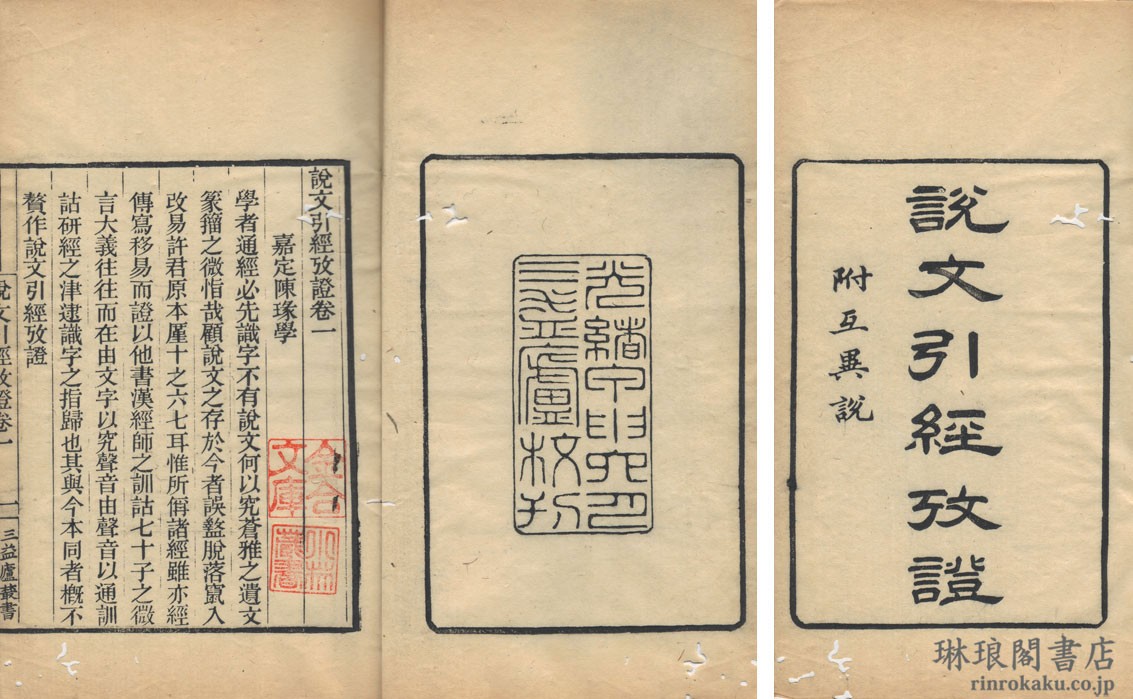 說文引經攷證
附互異說
光緒甲申六月
三益廬校刊
說文引經攷證卷一
嘉定陳瑑學
學者通經必先識字不有說文何以究蒼雅之遺文
篆籀之微恉哉顧說文之存於今者誤盭脫落竄入
改易許君原本厪十之六七耳惟所偁諸經雖亦經
傳寫移易而證以他書漢經師之訓詁七十子之微
言大義往往而在由文字以究聲音由聲音以通訓
詁研經之津逮識字之指歸也其與今本同者槪不
贅作說文引經攷證
說文引經攷證卷一
一
三益廬叢書
文庫
琳琅閣書店
rinrokaku.co.jp